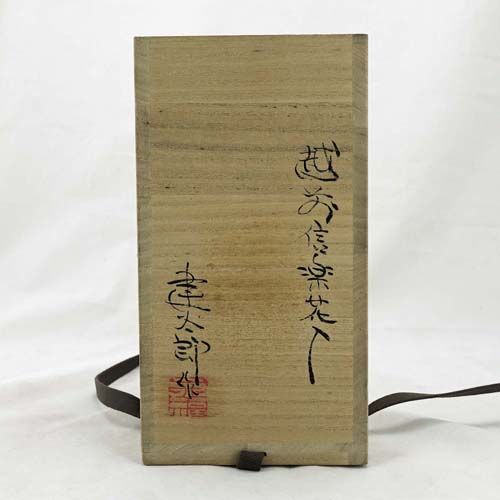 越前信楽花入
建太郎作